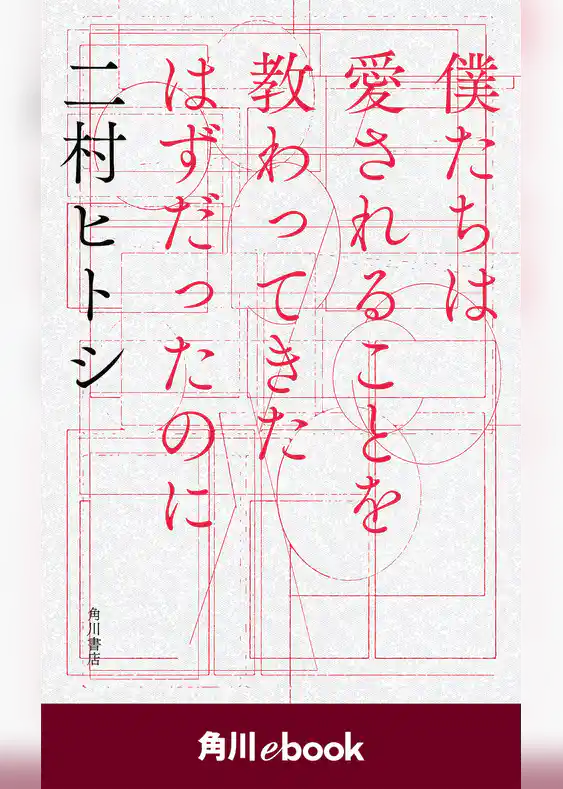 僕たちは
愛されることを
教わってきた
はずだったのに
二村ヒトシ
角川書店
角川ebook